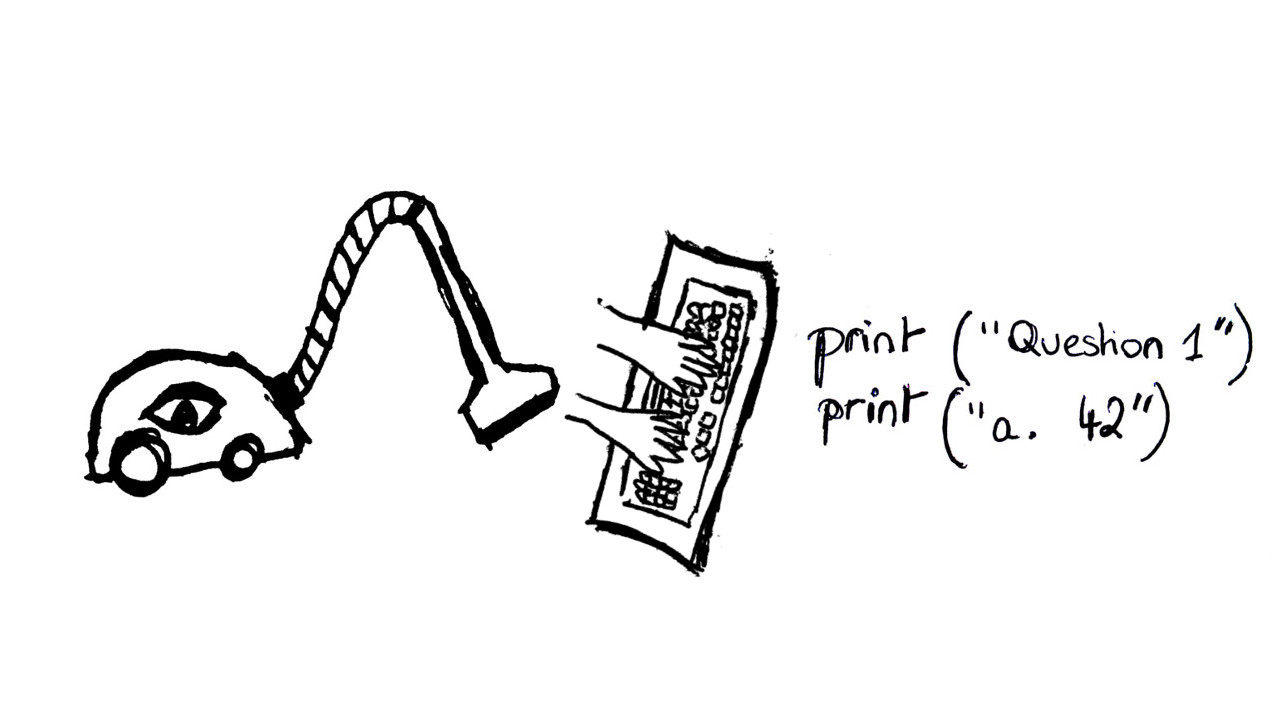 print ("Question 1")
print ("a. 42")